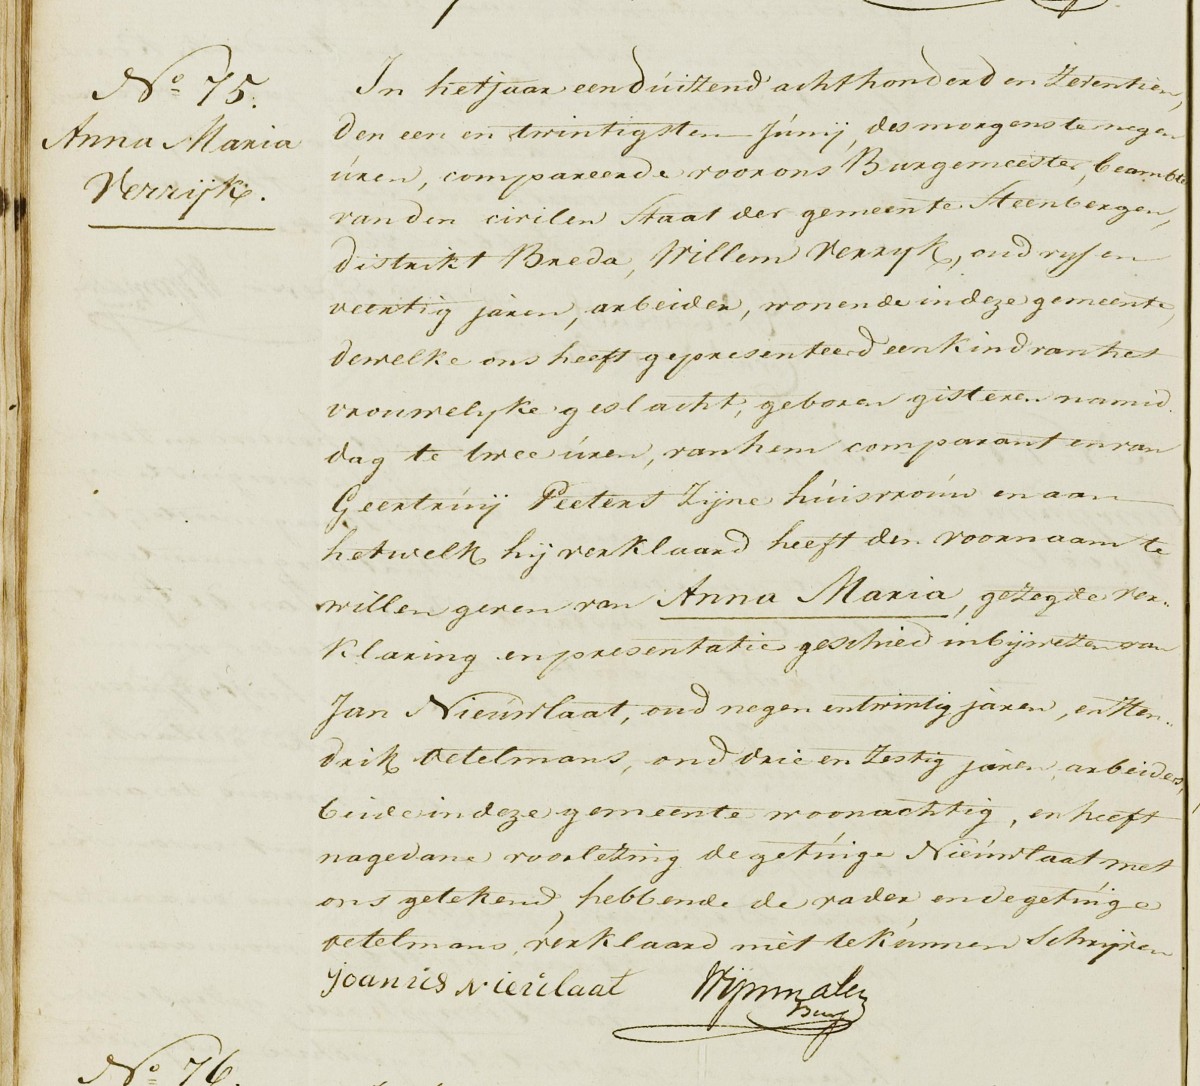 No 75.
Anna Maria
Verrijk.
In het jaar een duizend acht honderd en zeventien,
den een en twintigsten Junij, des morgens te negen
uren, compareerde voor ons Burgemeester, beambte
van den civilen Staat der gemeente Steenbergen,
distrikt Breda, Willem Verryk, oud vyf en
veertig jaren, arbeider, wonende in deze gemeente,
dewelke ons heeft gepresenteerd een kind van het
vrouwelyke geslacht, geboren gisteren namid
dag te twee uren, van hem comparant en van
Geertruij Peeters zijne huisvrouw en aan
hetwelk hij verklaard heeft den voornaam te
willen geven van Anna Maria, gezegde ver..
klaring en presentatie geschied in bijwezen van
Jan Nieuwlaat, oud negen en twintig jaren, en Hen..
drik Oetelmans, oud drie en zestig jaren, arbeiders,
beide in deze gemeente woonachtig, en heeft
na gedane voorlezing de getuige Nieuwlaat met
ons getekend, hebbende de vader en de getuige
Oetelmans, verklaard niet te kunnen schrijven
joanis Nieulaat Wijnmalen
Burg
No 76.